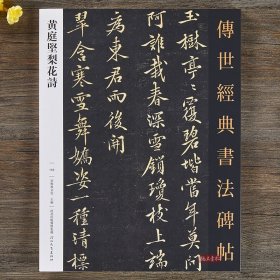 傳世經典書法碑帖
玉樹亭〻覆碧堦當年莫問
阿誰栽春深雪鎖瓊枝上端
為東君雨後開
翠含寒雪舞嬌姿一種清標
黄庭堅梨花詩